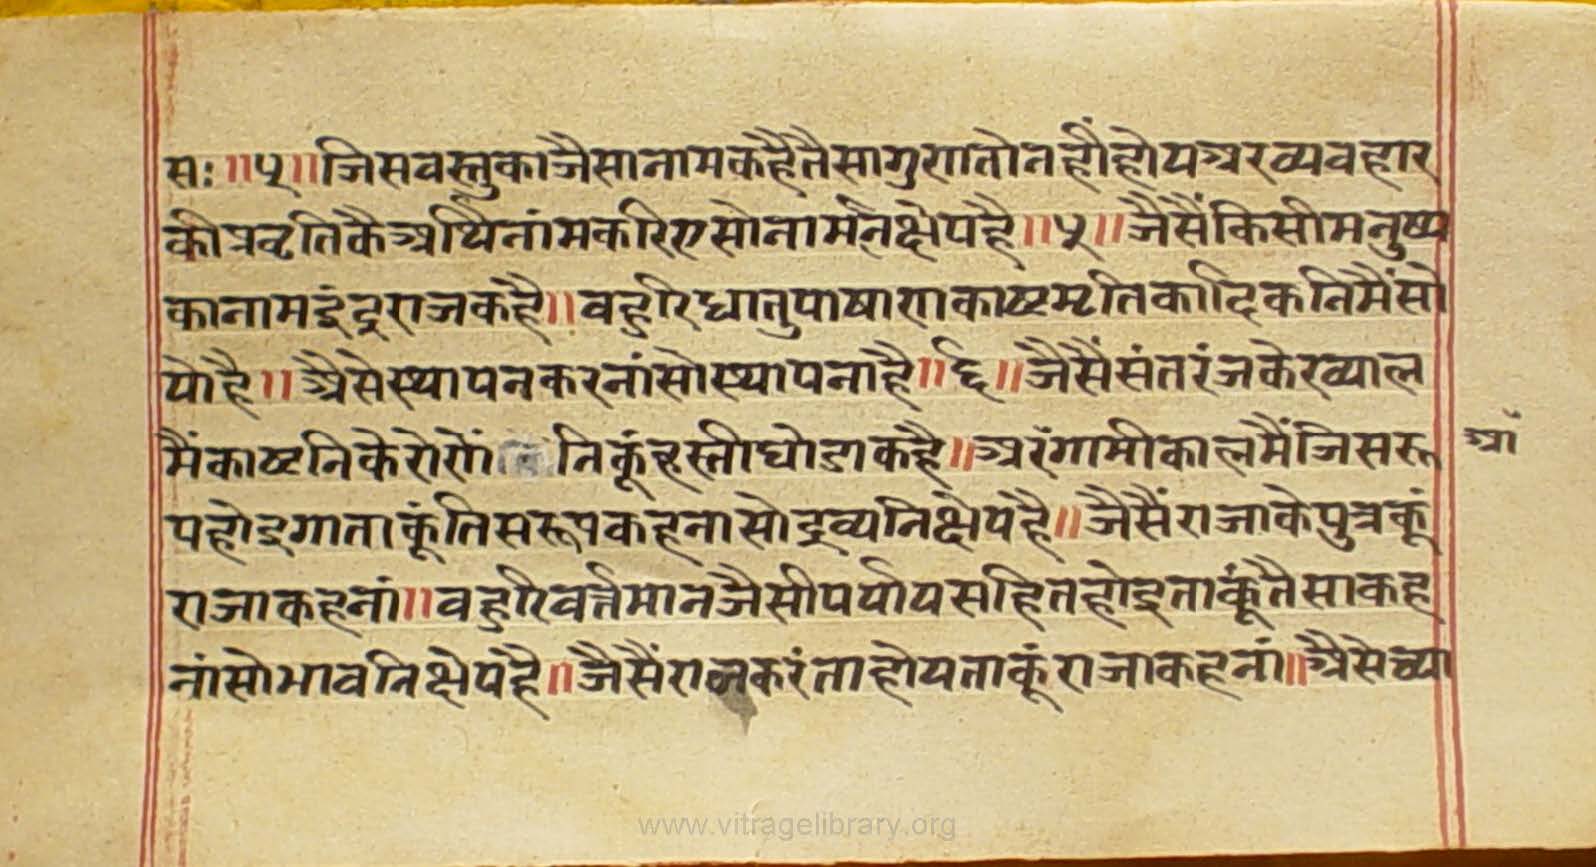 सः॥५॥जिसवस्तुकाजैसानामकहैतैसागुणतोनहींहोयअरव्यवहार
कीप्रवृतिकैअर्थिनांमकरिएसोनामनिक्षेपहै॥५॥जैसैंकिसीमनुष्य
कानामइंद्रराजकहै॥वहुरिधातुपाषाणकाष्टमृतिकादिकनिमैंसो
योहै॥अैसेस्थापनकरनांसोस्थापनाहै॥६॥जैसैंसंतरंजकेख्याल
मैंकाष्टनिकेरोरोंनिकूंहस्तीघोडाकहै॥अरंगामीकालमैंजिसरू आं
पहोइगाताकूंतिसरूपकहनासोद्रव्यनिक्षेपहै॥जैसैंराजाकेपुत्रकूं
राजाकहनां॥वहुरिवर्त्तमानजैसीपर्यायसहितहोइताकूंतैसाकह
नांसोभावनिक्षेपहै॥जैसैंराजकरंताहोयताकूंराजाकहनां॥अैसेच्या
www.vitragelibrary.org